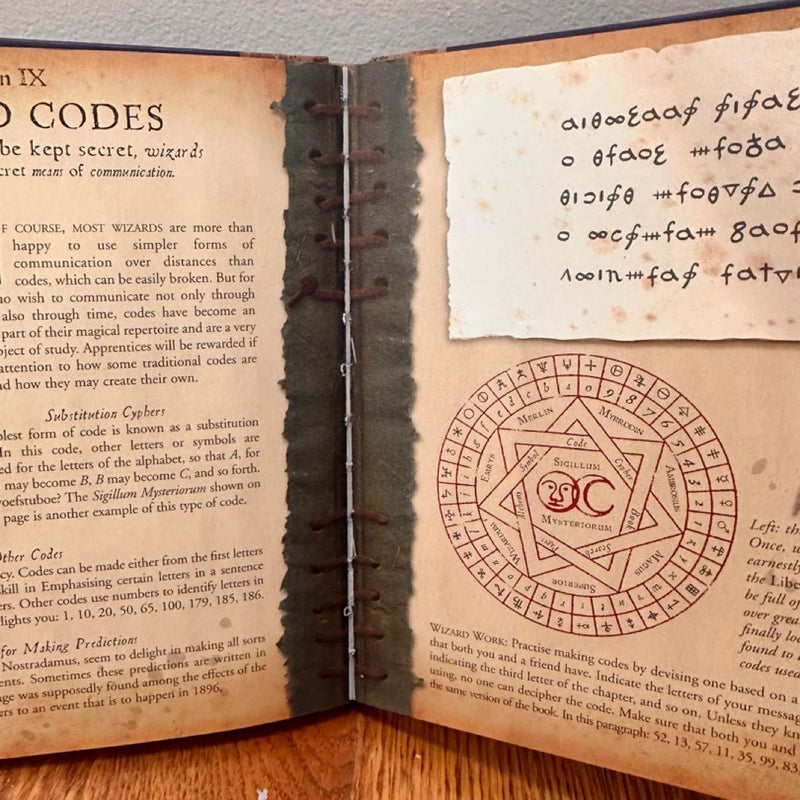 n IX
CODES
be kept secret, wizards
cret means of communication.
F COURSE, MOST WIZARDS are more than
happy to use simpler forms of
communication over distances than
codes, which can be easily broken. But for
ho wish to communicate not only through
also through time, codes have become an
part of their magical repertoire and are a very
bject of study. Apprentices will be rewarded if
attention to how some traditional codes are
nd how they may create their own.
Substitution Cyphers
plest form of code is known as a substitution
In this code, other letters or symbols are
ed for the letters of the alphabet, so that A, for
may become B, B may become C, and so forth.
voefstuboe? The Sigillum Mysteriorum shown on
page is another example of this type of code.
Other Codes
cy. Codes can be made either from the first letters
skill in Emphasising certain letters in a sentence
ers. Other codes use numbers to identify letters in
lights you: 1, 10, 20, 50, 65, 100, 179, 185, 186.
for Making Predictions
Nostradamus, seem to delight in making all sorts
ents. Sometimes these predictions are written in
age was supposedly found among the effects of the
ers to an event that is to happen in 1896.
MERLIN
MYRRDDIN
AMBROSIUS
MAGUS
SUPERIOR
WIZARDUS
EMRYS
Code
Cypher
Book
Search
Symbol
SIGILLUM
MYSTERIORUM
Left: th
Once, u
earnestly
the Libe
be full of
over grea
finally lo
found to
codes used
WIZARD WORK: Practise making codes by devising one based on a
that both you and a friend have. Indicate the letters of your messag
indicating the third letter of the chapter, and so on. Unless they kn
using, no one can decipher the code. Make sure that both you and
the same version of the book. In this paragraph: 52, 13, 57, 11, 35, 99, 83,